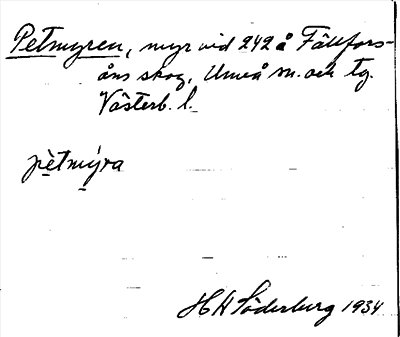 Petmyren, myr vid 242 å Fällfors-
åns skog, Umeå sn. och tg.
Västerb. l.
pètmýra
H H Söderberg 1934